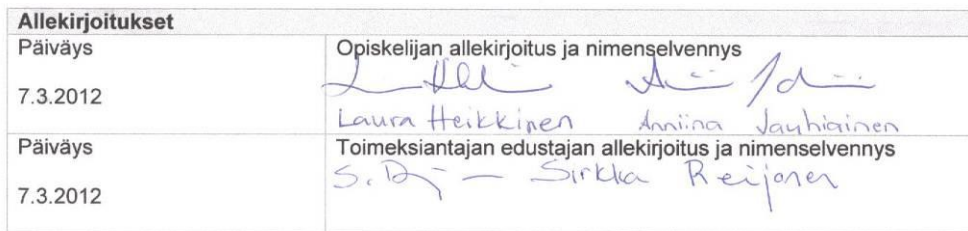 Allekirjoitukset
Päiväys
Opiskelijan allekirjoitus ja nimenselvennys
7.3.2012
Laura Heikkinen Anniina Jauhiainen
Päiväys
Toimeksiantajan edustajan allekirjoitus ja nimenselvennys
Sirkka Reijonen
7.3.2012